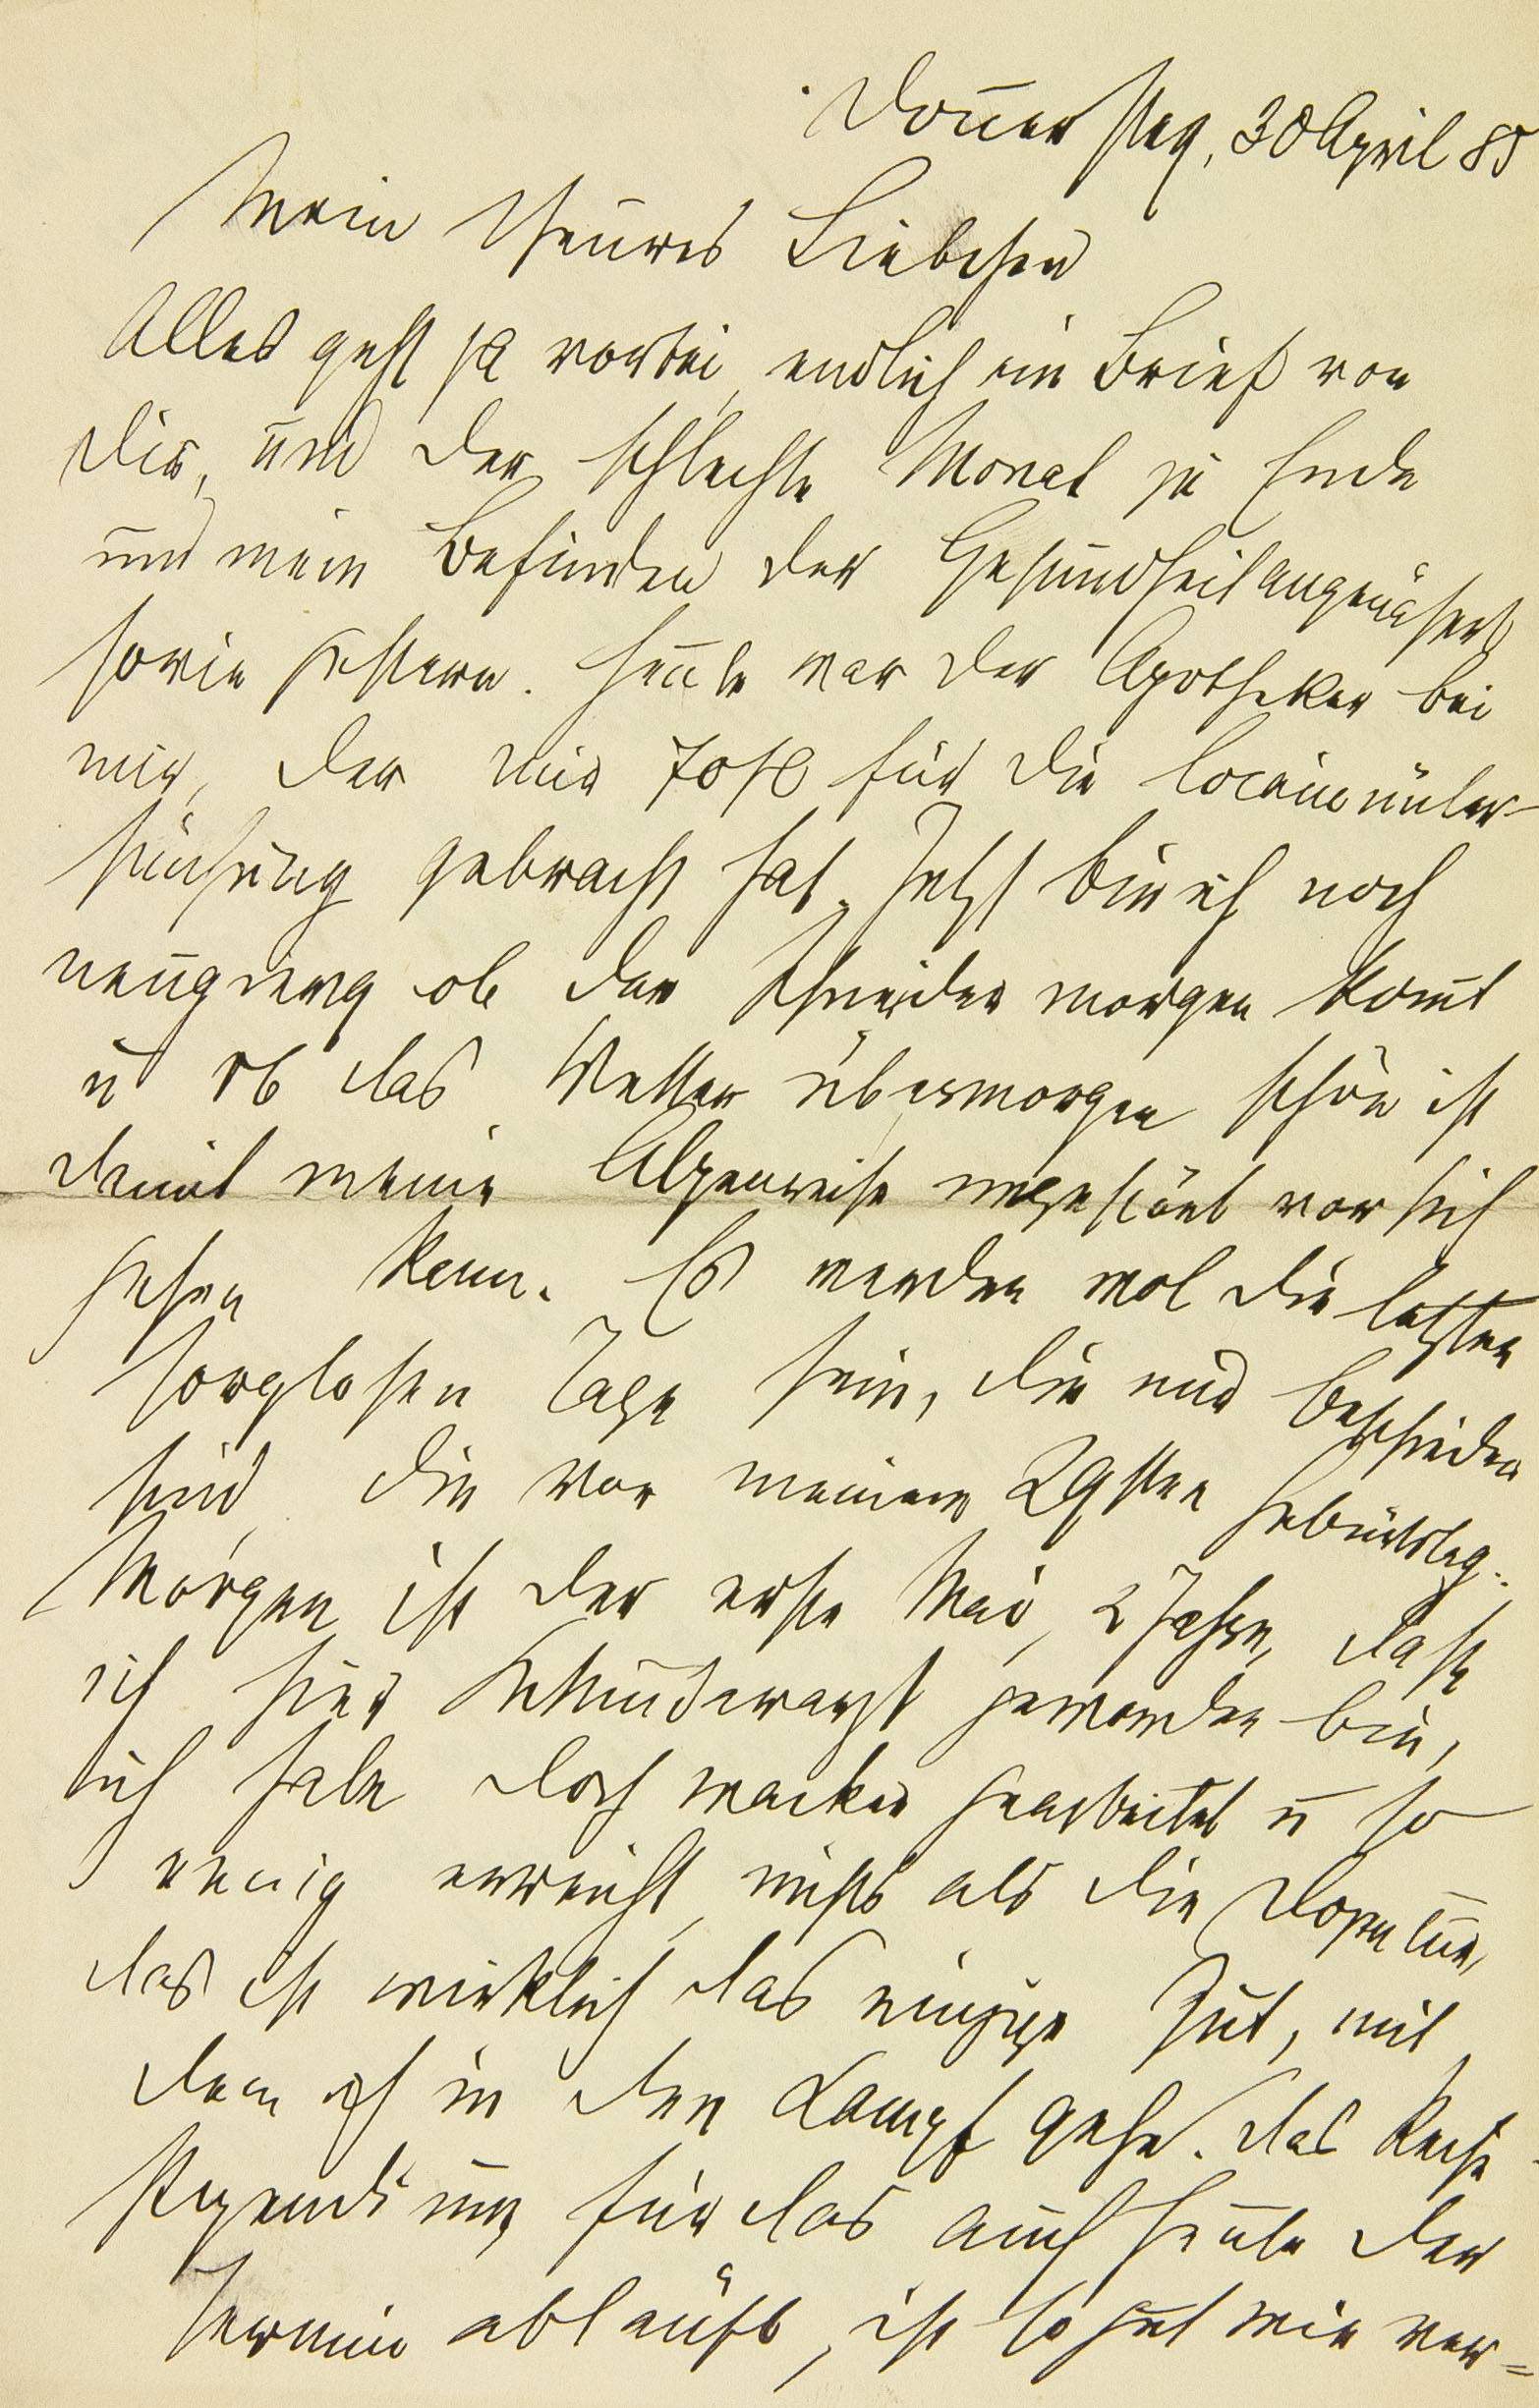 Donnerstag, 30 April 85
Mein theures Liebchen
Alles geht ja vorbei, endlich ein Brief von
Dir, und der schlechte Monat zu Ende
und mein Befinden der Gesundheit angenähert
sowie gestern. Heute war der Apotheker bei
mir, der mir 70 fl für die Cocainunter-
suchung gebracht hat. Jetzt bin ich noch
neugierig ob der Schneider morgen kom̄t
u ob das Wetter übermorgen schön ist
damit meine Alpenreise ungestört vor sich
gehen kann. Es werden wol die letzten
sorglosen Tage sein, die mir beschieden
sind, die vor meinem 29sten Geburtstag.
Morgen ist der erste Mai, 2 Jahre, daß
ich hier Sekundararzt geworden bin,
ich habe doch wacker gearbeitet u so
wenig erreicht, nichts als die Dozentur,
das ist wirklich das einzige Gut, mit
dem ich in den Kampf gehe. Das Reise-
stipendium, für das auch heute der
Termin abläuft, ist so gut wie ver=